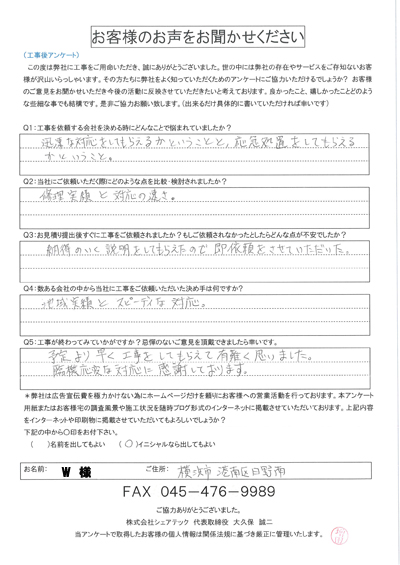 お客様のお声をお聞かせください
（工事後アンケート）
この度は弊社に工事をご用命いただき、誠にありがとうございました。世の中には弊社の存在やサービスをご存知ないお客
様が沢山いらっしゃいます。その方たちに弊社をよく知っていただくためのアンケートにご協力いただけるでしょうか？ お客様
のご意見をお聞かせいただき今後の活動に反映させていただきたいと考えております。良かったこと、嬉しかったことどのよう
な些細な事でも結構です。是非ご協力お願い致します。（出来るだけ具体的に書いていただければ幸いです）
Q1：工事を依頼する会社を決める時にどんなことで悩まれていましたか？
迅速な対応をしてもらえるかということと、応急処置をしてもらえる
かということ。
Q2：当社にご依頼いただく際にどのような点を比較・検討されましたか？
修理実績と対応の速さ。
Q3：お見積り提出後すぐに工事をご依頼されましたか？もしご依頼されなかったとしたらどんな点が不安でしたか？
納得のいく説明をしてもらえたので即依頼をさせていただいた。
Q4：数ある会社の中から当社に工事をご依頼いただいた決め手は何ですか？
地域実績とスピーディな対応。
Q5：工事が終わってみていかがですか？忌憚のないご意見を頂戴できましたら幸いです。
予定より早く工事をしてもらえて有難く思いました。
臨機応変な対応に感謝しております。
＊弊社は広告宣伝費を極力かけない為にホームページだけを頼りにお客様への営業活動を行っております。本アンケート
用紙またはお客様宅の調査風景や施工状況を随時ブログ形式のインターネットに掲載させていただいております。上記内容
をインターネットや印刷物に掲載させていただいてもよろしいでしょうか？
下記の中から〇印をお付下さい。
（　）名前を出してもよい （〇）イニシャルなら出してもよい
お名前： W 様 ご住所： 横浜市港南区日野南
FAX 045-476-9989
ご協力ありがとうございました。
株式会社シェアテック 代表取締役 大久保 誠二
当アンケートで取得したお客様の個人情報は関係法規に基づき厳正に管理いたします。